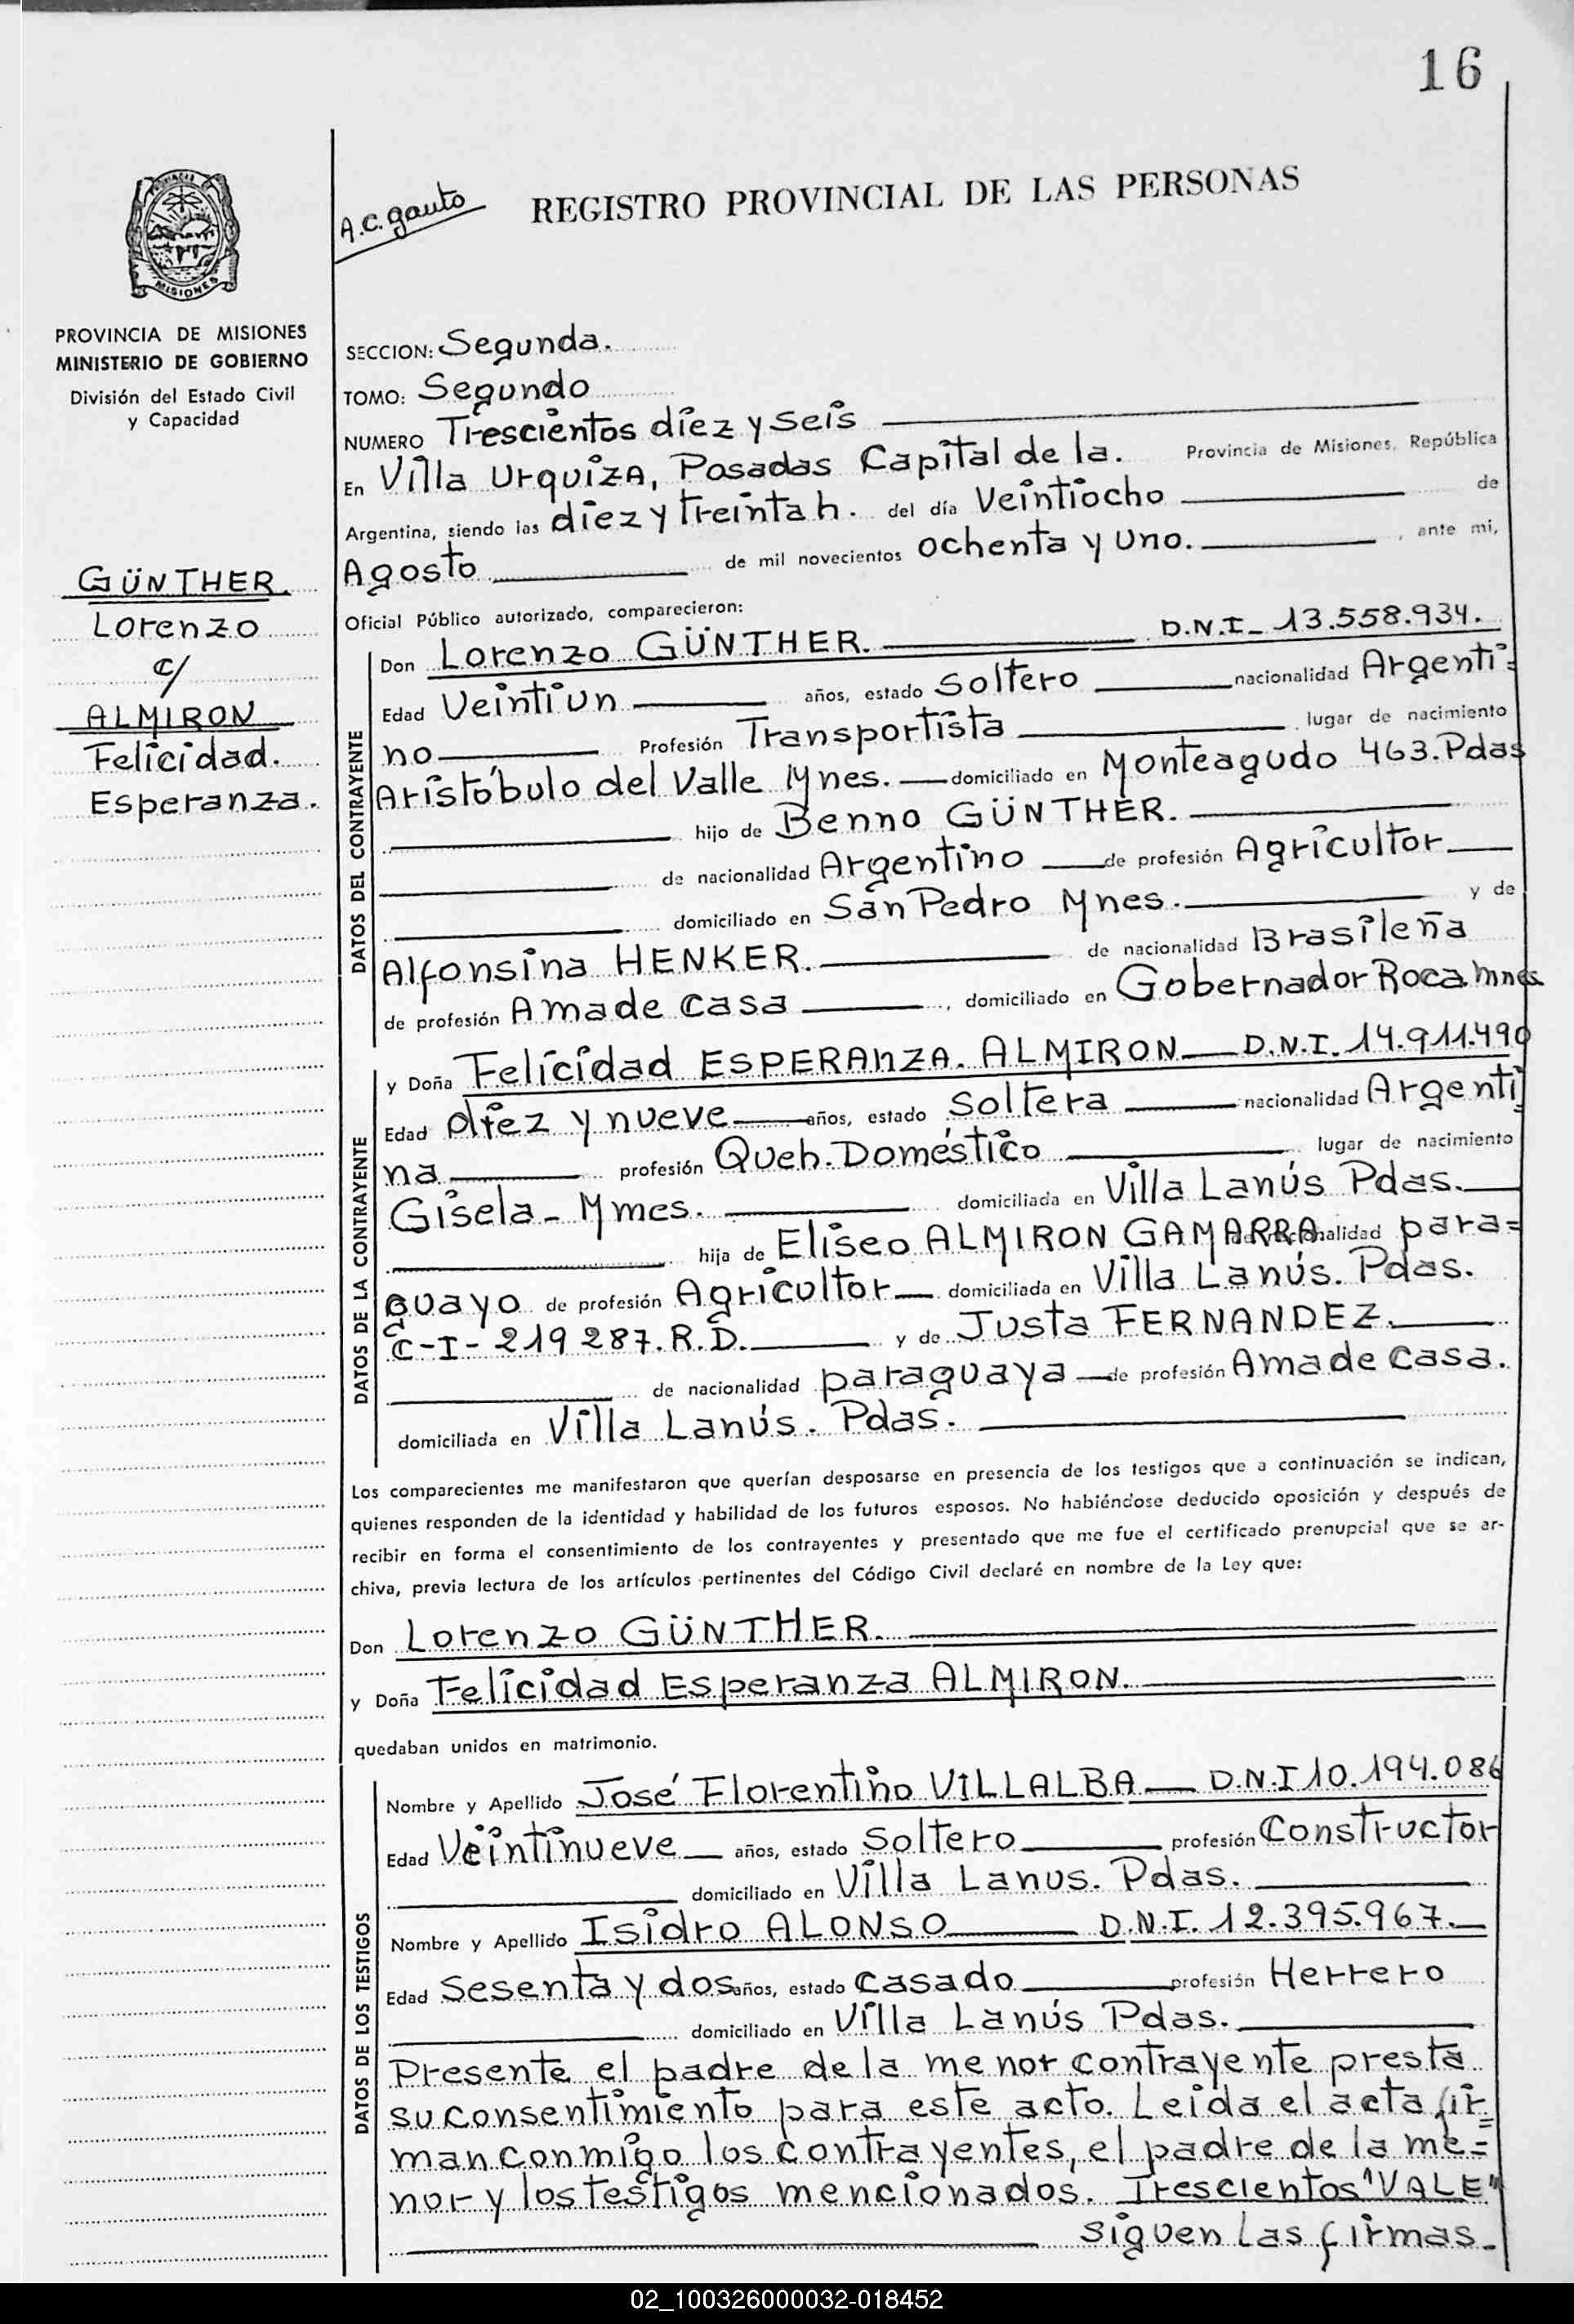 16
PROVINCIA DE
MISIONES
A.C. gauto
REGISTRO PROVINCIAL DE LAS PERSONAS
PROVINCIA DE MISIONES
MINISTERIO DE GOBIERNO
División del Estado Civil
y Capacidad
GÜNTHER
Lorenzo
c/
ALMIRON
Felicidad.
Esperanza.
SECCION: Segunda.
TOMO: Segundo
NUMERO Trescientos diez y seis
En Villa Urquiza, Posadas Capital de la. Provincia de Misiones, República
Argentina, siendo las diez y treinta h. del día Veintiocho de
Agosto de mil novecientos ochenta y uno. , ante mi,
Oficial Público autorizado, comparecieron:
DATOS DEL CONTRAYENTE
Don Lorenzo GÜNTHER. D.N.I- 13.558.934.
Edad Veintiun años, estado Soltero nacionalidad Argenti=
no Profesión Transportista lugar de nacimiento
Aristóbulo del Valle Mnes. domiciliado en Monteagudo 463. Pdas
hijo de Benno GÜNTHER.
de nacionalidad Argentino de profesión Agricultor
domiciliado en San Pedro Mnes. y de
Alfonsina HENKER. de nacionalidad Brasileña
de profesión Ama de casa , domiciliado en Gobernador Roca Mnes
DATOS DE LA CONTRAYENTE
y Doña Felicidad ESPERANZA. ALMIRON D.N.I. 14.911.490
Edad diez y nueve años, estado Soltera nacionalidad Argenti=
na profesión Queh. Doméstico lugar de nacimiento
Gisela - Mmes. domiciliada en Villa Lanús Pdas.
hija de Eliseo ALMIRON GAMARRA de nacionalidad para=
guayo de profesión Agricultor domiciliada en Villa Lanús. Pdas.
C-I- 219287. R.D. y de Justa FERNANDEZ.
de nacionalidad paraguaya de profesión Ama de casa.
domiciliada en Villa Lanús. Pdas.
Los comparecientes me manifestaron que querían desposarse en presencia de los testigos que a continuación se indican,
quienes responden de la identidad y habilidad de los futuros esposos. No habiéndose deducido oposición y después de
recibir en forma el consentimiento de los contrayentes y presentado que me fue el certificado prenupcial que se ar-
chiva, previa lectura de los artículos pertinentes del Código Civil declaré en nombre de la Ley que:
Don Lorenzo GÜNTHER.
y Doña Felicidad Esperanza ALMIRON.
quedaban unidos en matrimonio.
DATOS DE LOS TESTIGOS
Nombre y Apellido José Florentino VILLALBA D.N.I 10.194.086
Edad Veintinueve años, estado Soltero profesión Constructor
domiciliado en Villa Lanus. Pdas.
Nombre y Apellido Isidro ALONSO D.N.I. 12.395.967.
Edad Sesenta y dos años, estado Casado profesión Herrero
domiciliado en Villa Lanús Pdas.
Presente el padre de la menor contrayente presta
su consentimiento para este acto. Leida el acta fir=
man conmigo los contrayentes, el padre de la me=
nor y los testigos mencionados. Trescientos "VALE"
siguen las firmas.
02_100326000032-018452